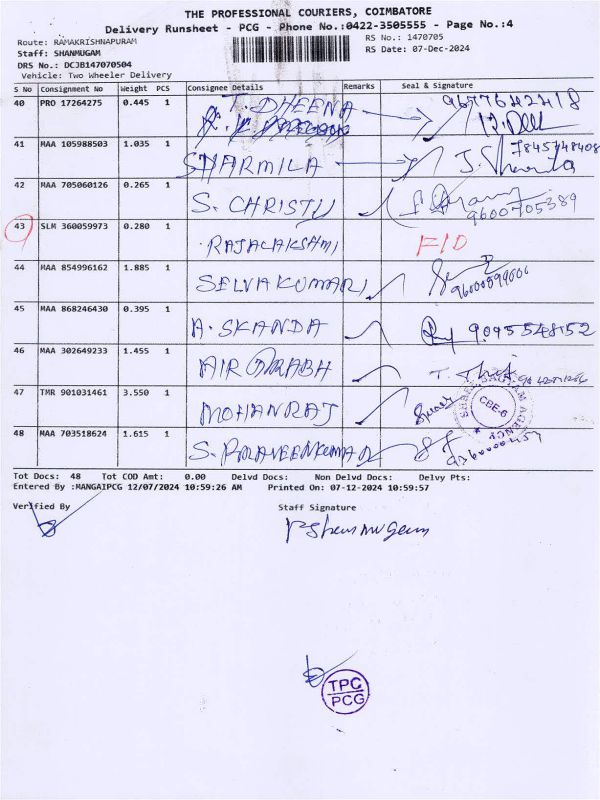 THE PROFESSIONAL COURIERS, COIMBATORE
Delivery Runsheet - PCG - Phone No.:0422-3505555 - Page No.:4
Route: RAMAKRISHNAPURAM RS No.: 1470705
Staff: SHANMUGAM RS Date: 07-Dec-2024
DRS No.: DCJB147070504
Vehicle: Two Wheeler Delivery
S No Consignment No Weight PCS Consignee Details Remarks Seal & Signature
40 PRO 17264275 0.445 1 T. DHEENA
41 MAA 105988503 1.035 1 SHARMILA 7845748408
42 MAA 705060126 0.265 1 S. CHRISTY 9600705389
43 SLM 360059973 0.280 1 RAJALAKSHMI
44 MAA 854996162 1.885 1 SELVAKUMARI
45 MAA 868246430 0.395 1 A. SKANDA 9095548152
46 MAA 302649233 1.455 1 AIR PRABH
47 TMR 901031461 3.550 1 MOHANRAJ CBE-6
48 MAA 703518624 1.615 1 S. PRAVEENKUMAR
Tot Docs: 48 Tot COD Amt: 0.00 Delvd Docs: Non Delvd Docs: Delvy Pts:
Entered By :MANGAIPCG 12/07/2024 10:59:26 AM Printed On: 07-12-2024 10:59:57
Verified By Staff Signature
P Shanmugam
TPC
PCG